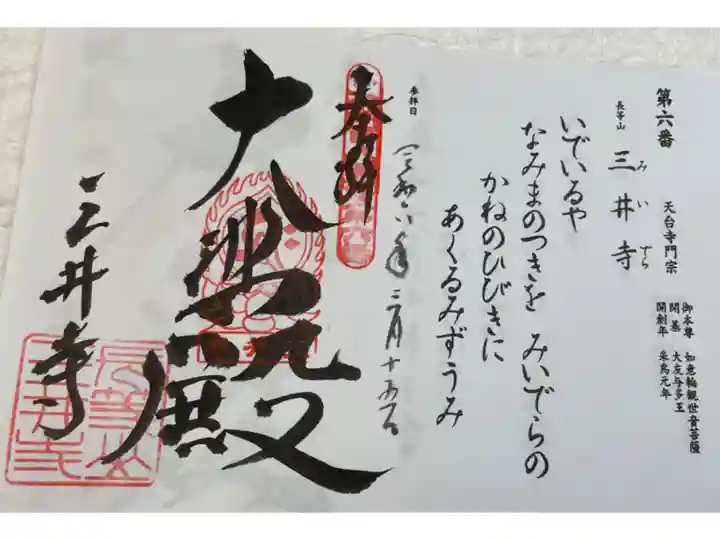 第六番
長等山 三井寺 天台寺門宗
みいでら
御本尊 如意輪観世音菩薩
開基 大友与多王
開創年 朱鳥元年
いでいるや
なみまのつきを みいでらの
かねのひびきに
あくるみずうみ
参拝日
令和六年三月十五日
奉拝
大悲殿
三井寺